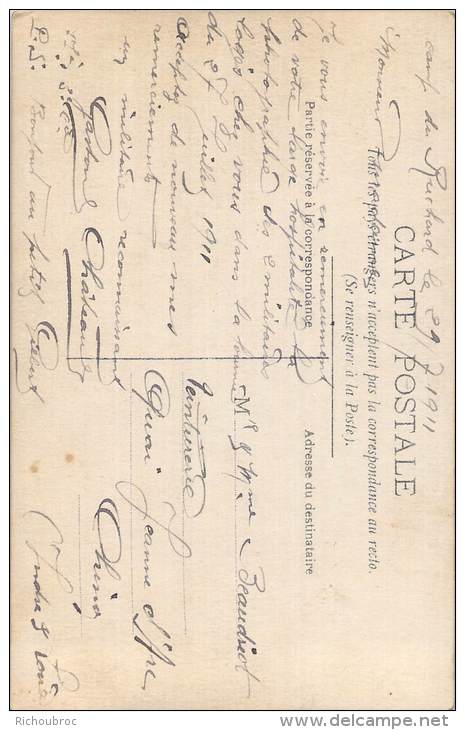 CARTE POSTALE
Tous les pays étrangers n'acceptent pas la correspondance au recto.
(Se renseigner à la Poste).
Partie réservée à la correspondance
Adresse du destinataire
camp du Ruchard le 29/7 1911
Monsieur
je vous envoi en remerciement
de votre large hospitalité la
photographie des militaires
logés chez vous dans la
du 27 Juillet 1911
acceptez de nouveau mes
remerciements
un militaire reconnaissant
Gaston Chateau
P.S. Bonjour au petit
Mr & Mme Beaudriot
Teinturerie
Quai Jeanne d'Arc,
Chinon
(Indre & Loire
Richoubroc
delcampe.net